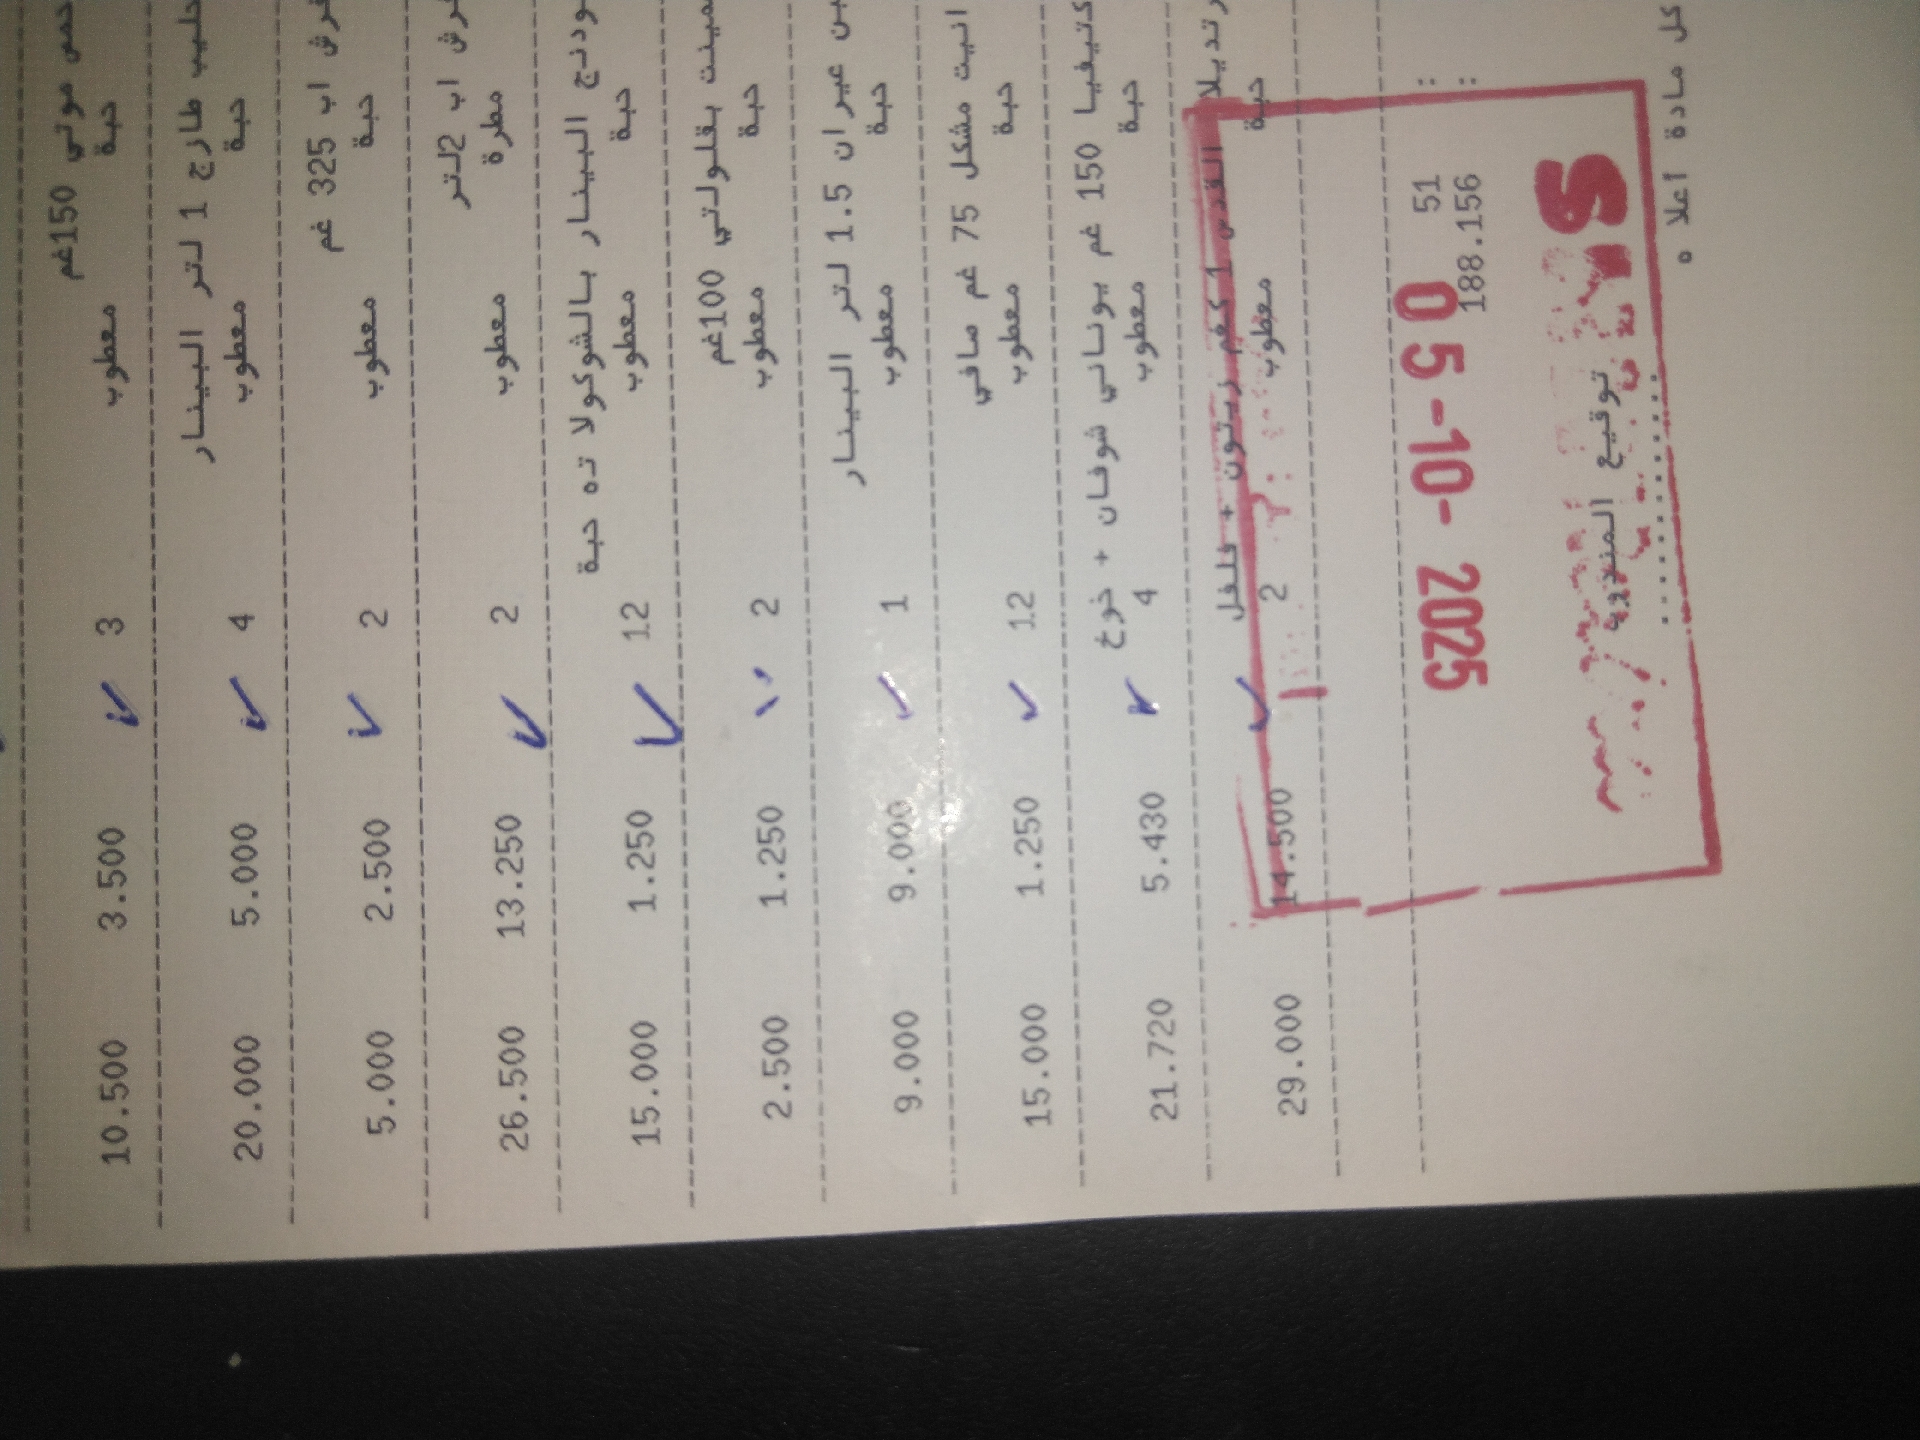 حمص مولي 150غم
حبة معطوب 3 3.500 10.500
حليب طازج 1 لتر البينار
حبة معطوب 4 5.000 20.000
اب 325 غم
حبة معطوب 2 2.500 5.000
اب 2لتر
مطرة معطوب 2 13.250 26.500
بالشوكولا ته حبة البينار
حبة معطوب 12 1.250 15.000
100غم
حبة معطوب 2 1.250 2.500
عيران 1.5 لتر البينار
حبة معطوب 1 9.000 9.000
مشكل 75 غم صافي
حبة معطوب 12 1.250 15.000
150 غم يوناني شوفان + خوخ
حبة معطوب 4 5.430 21.720
القدس 1 كغم زيتون + فلفل
حبة معطوب 2 14.500 29.000
: 51
: 188.156
05-10-2025
توقيع المندوب
كل مادة اعلا ه